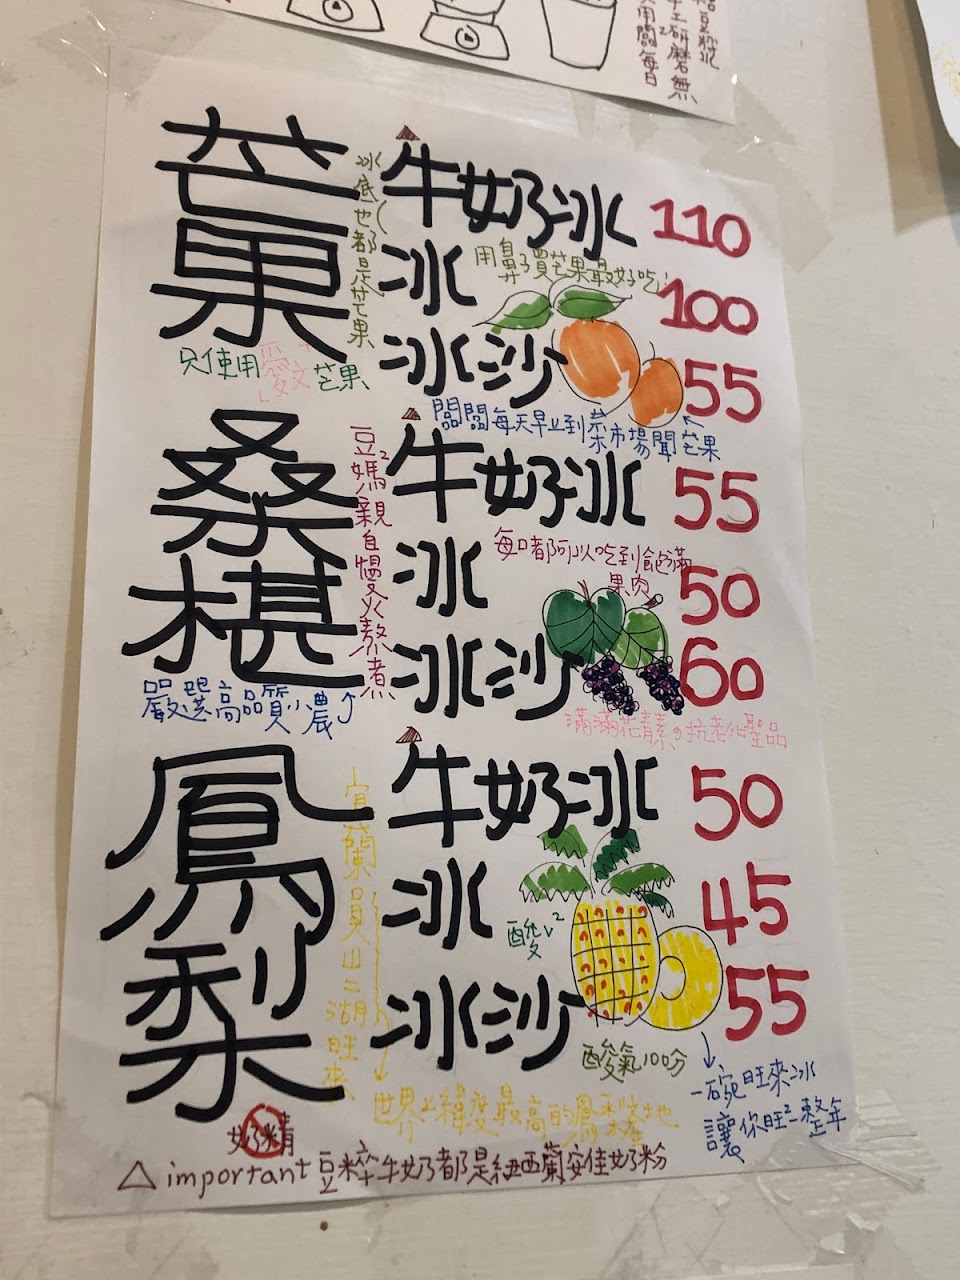 工研磨無
用闆每日
芒果
冰底也都是芒果
只使用愛文芒果
牛奶冰 110
用鼻子買芒果最好吃
冰 100
冰沙 55
闆闆每天早上到菜市場聞芒果
桑椹
豆媽親自慢火熬煮
嚴選高品質小農
牛奶冰 55
每口都可以吃到飽滿果肉
冰 50
冰沙 60
滿滿花青素抗老化聖品
鳳梨
宜蘭員山二湖旺來
世界上緯度最高的鳳梨產地
牛奶冰 50
冰 45
酸V²
冰沙 55
酸氣100分
一碗旺來冰
讓你旺²一整年
奶精
△ important 豆粹牛奶都是紐西蘭安佳奶粉